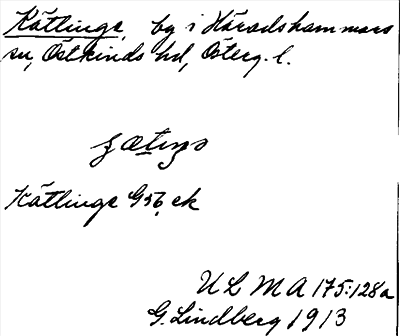 Kätlinge, by i Häradshammars
sn, Östkinds hd, Österg. l.
Kätlinge G56, ek
ULMA 175:128a
G. Lindberg 1913